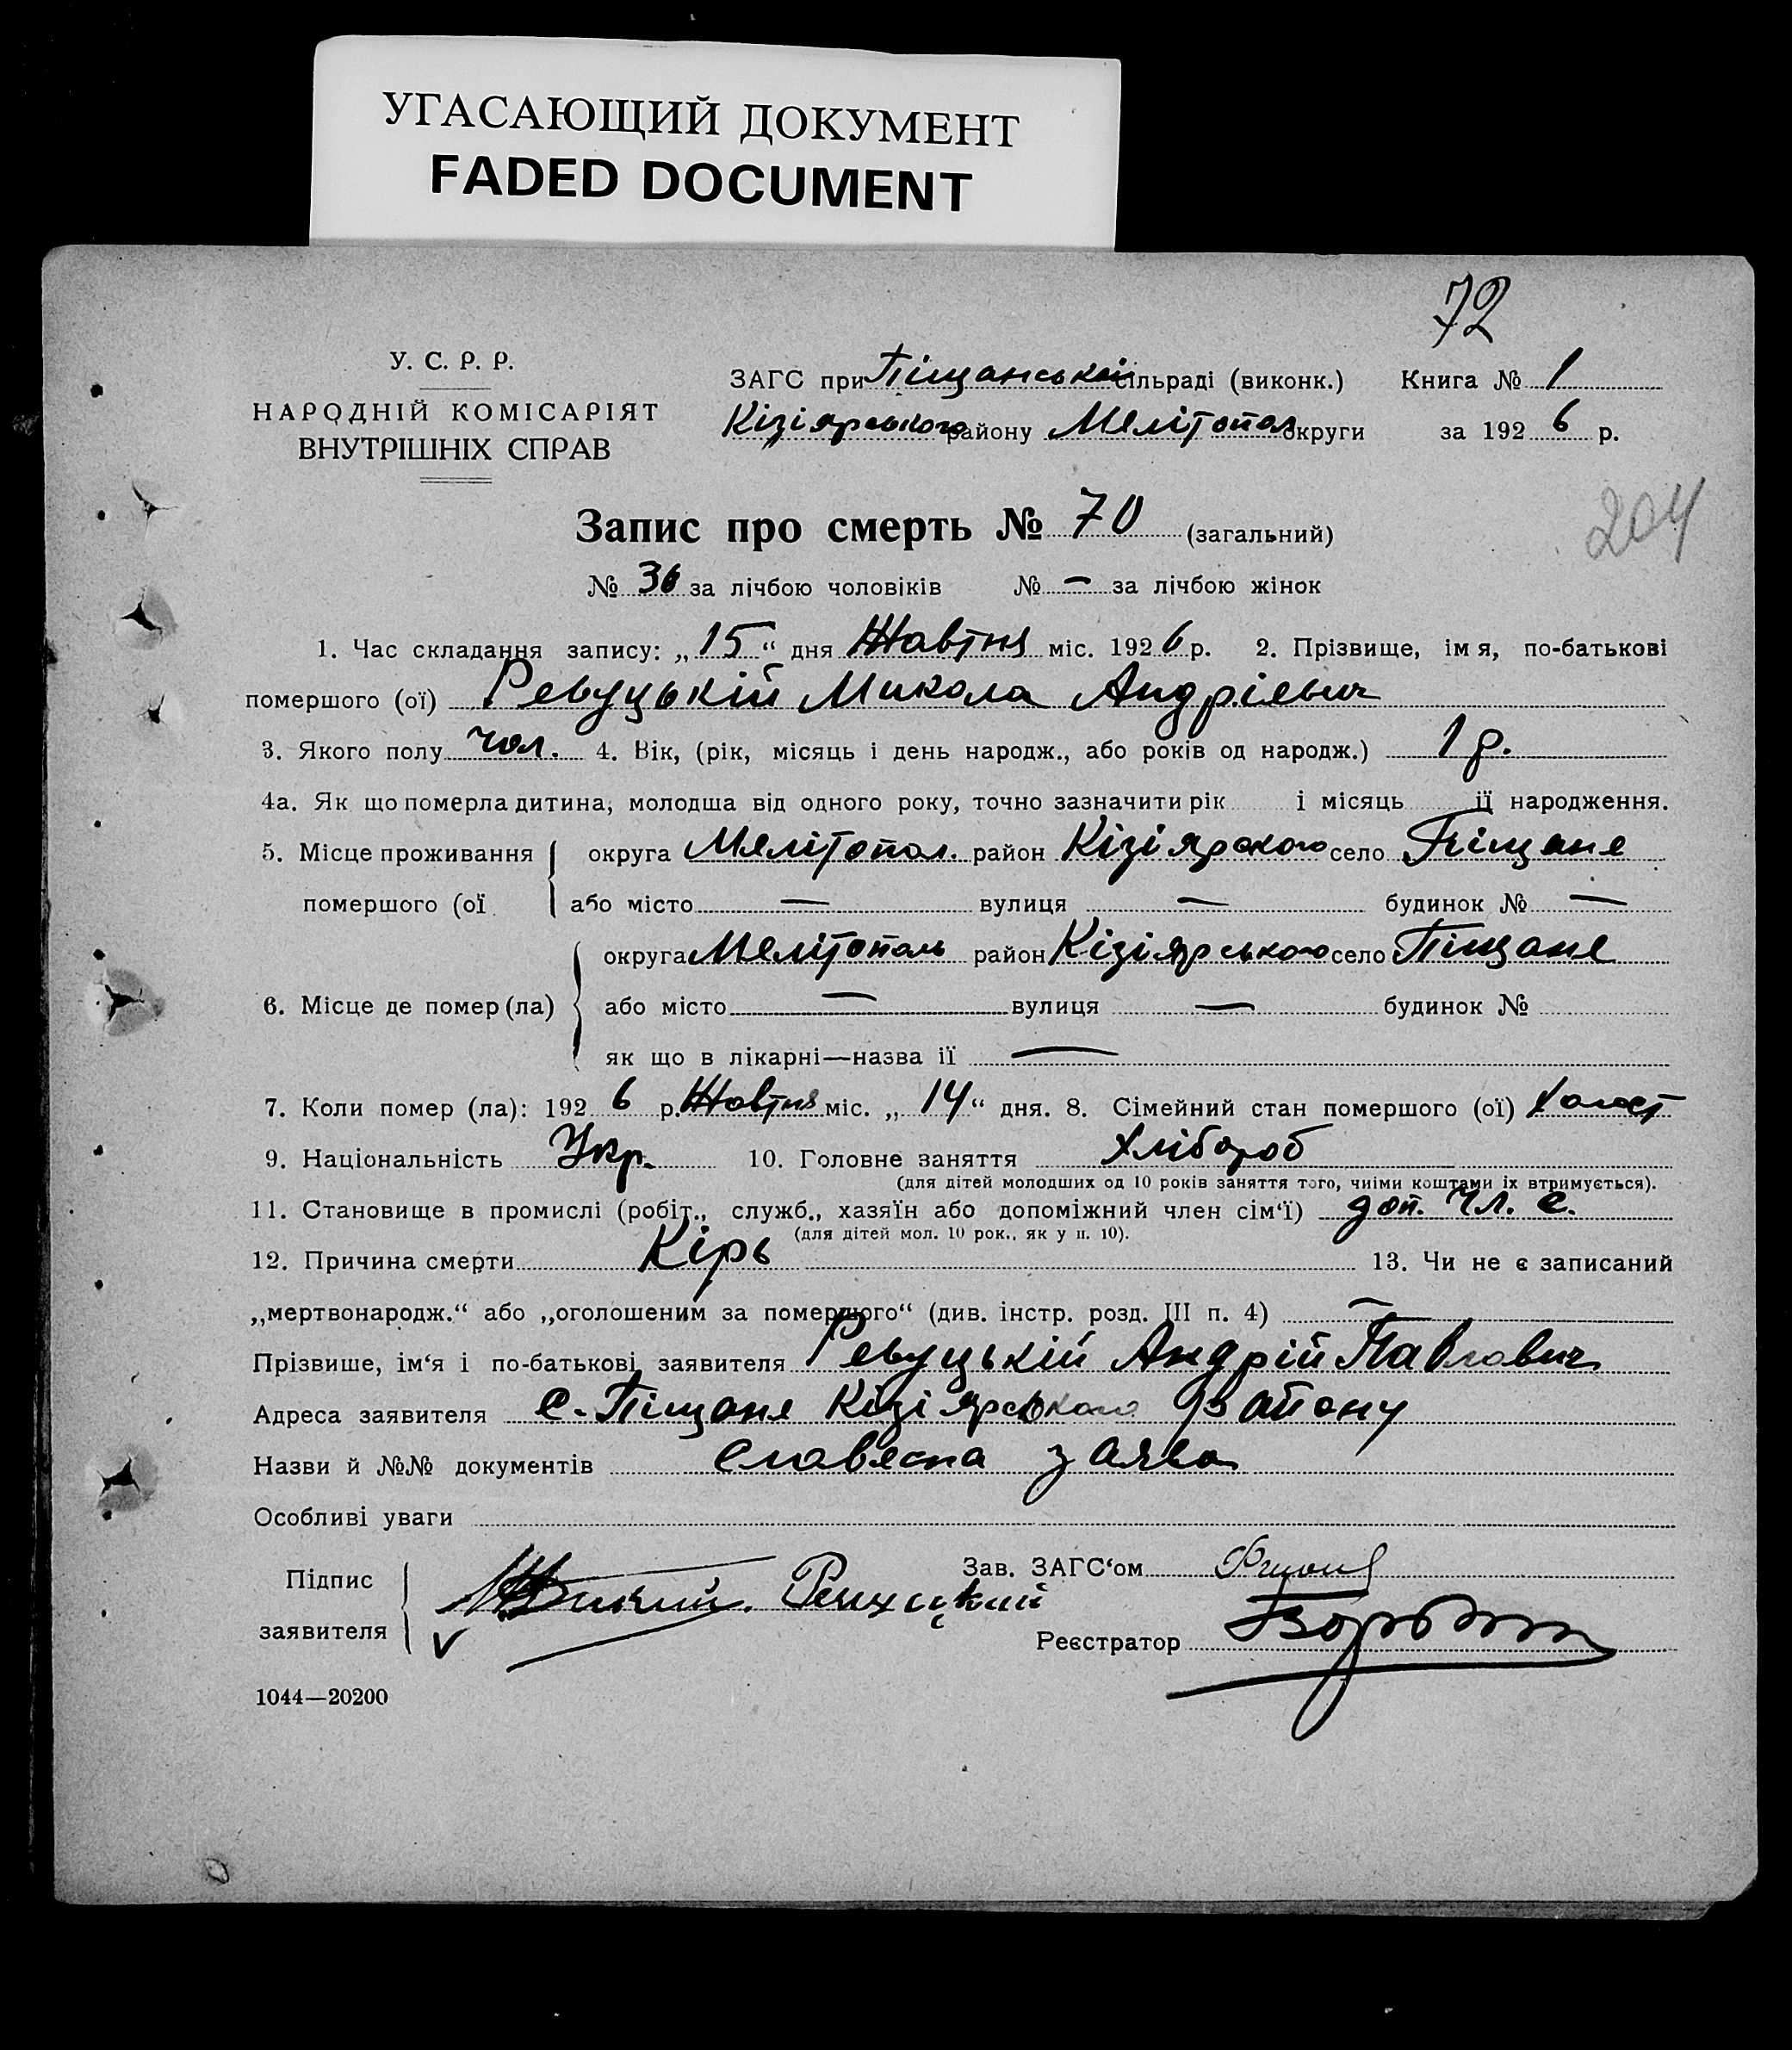 УГАСАЮЩИЙ ДОКУМЕНТ
FADED DOCUMENT
72
У. С. Р. Р.
НАРОДНІЙ КОМІСАРІЯТ
ВНУТРІШНІХ СПРАВ
ЗАГС при Піщанській сільраді (виконк.) Книга № 1
Кізіярського району Мелітопол округи за 1926 р.
204
Запис про смерть № 70 (загальний)
№ 36 за лічбою чоловіків № — за лічбою жінок
1. Час складання запису: „15“ дня Жовтня міс. 1926 р. 2. Прізвище, імя, по-батькові
помершого (ої) Ревуцький Микола Андрієвич
3. Якого полу чол. 4. Вік, (рік, місяць і день народж., або років од народж.) 1 р.
4а. Як що померла дитина, молодша від одного року, точно зазначити рік і місяць ії народження.
5. Місце проживання помершого (ої
округа Мелітопол. район Кізіярского село Піщане
або місто — вулиця — будинок № —
6. Місце де помер (ла)
округа Мелітополь район Кізіярського село Піщане
або місто — вулиця — будинок №
як що в лікарні—назва ії —
7. Коли помер (ла): 1926 р. Жовтня міс. „14“ дня. 8. Сімейний стан помершого (ої) Холост
9. Національність Укр. 10. Головне заняття Хлібороб
(для дітей молодших од 10 років заняття того, чиїми коштами їх втримується).
11. Становище в промислі (робіт., служб., хазяїн або допоміжний член сім‘ї) доп. чл. с.
(для дітей мол. 10 рок., як у п. 10).
12. Причина смерти Кірь 13. Чи не є записаний
„мертвонародж.“ або „оголошеним за помершого“ (див. інстр. розд. III п. 4) —
Прізвише, ім‘я і по-батькові заявителя Ревуцькій Андрій Павлович
Адреса заявителя с. Піщане Кізіярського Району
Назви й №№ документів Славесна заява
Особливі уваги
Підпис заявителя
Зав. ЗАГС‘ом
Реєстратор
1044—20200